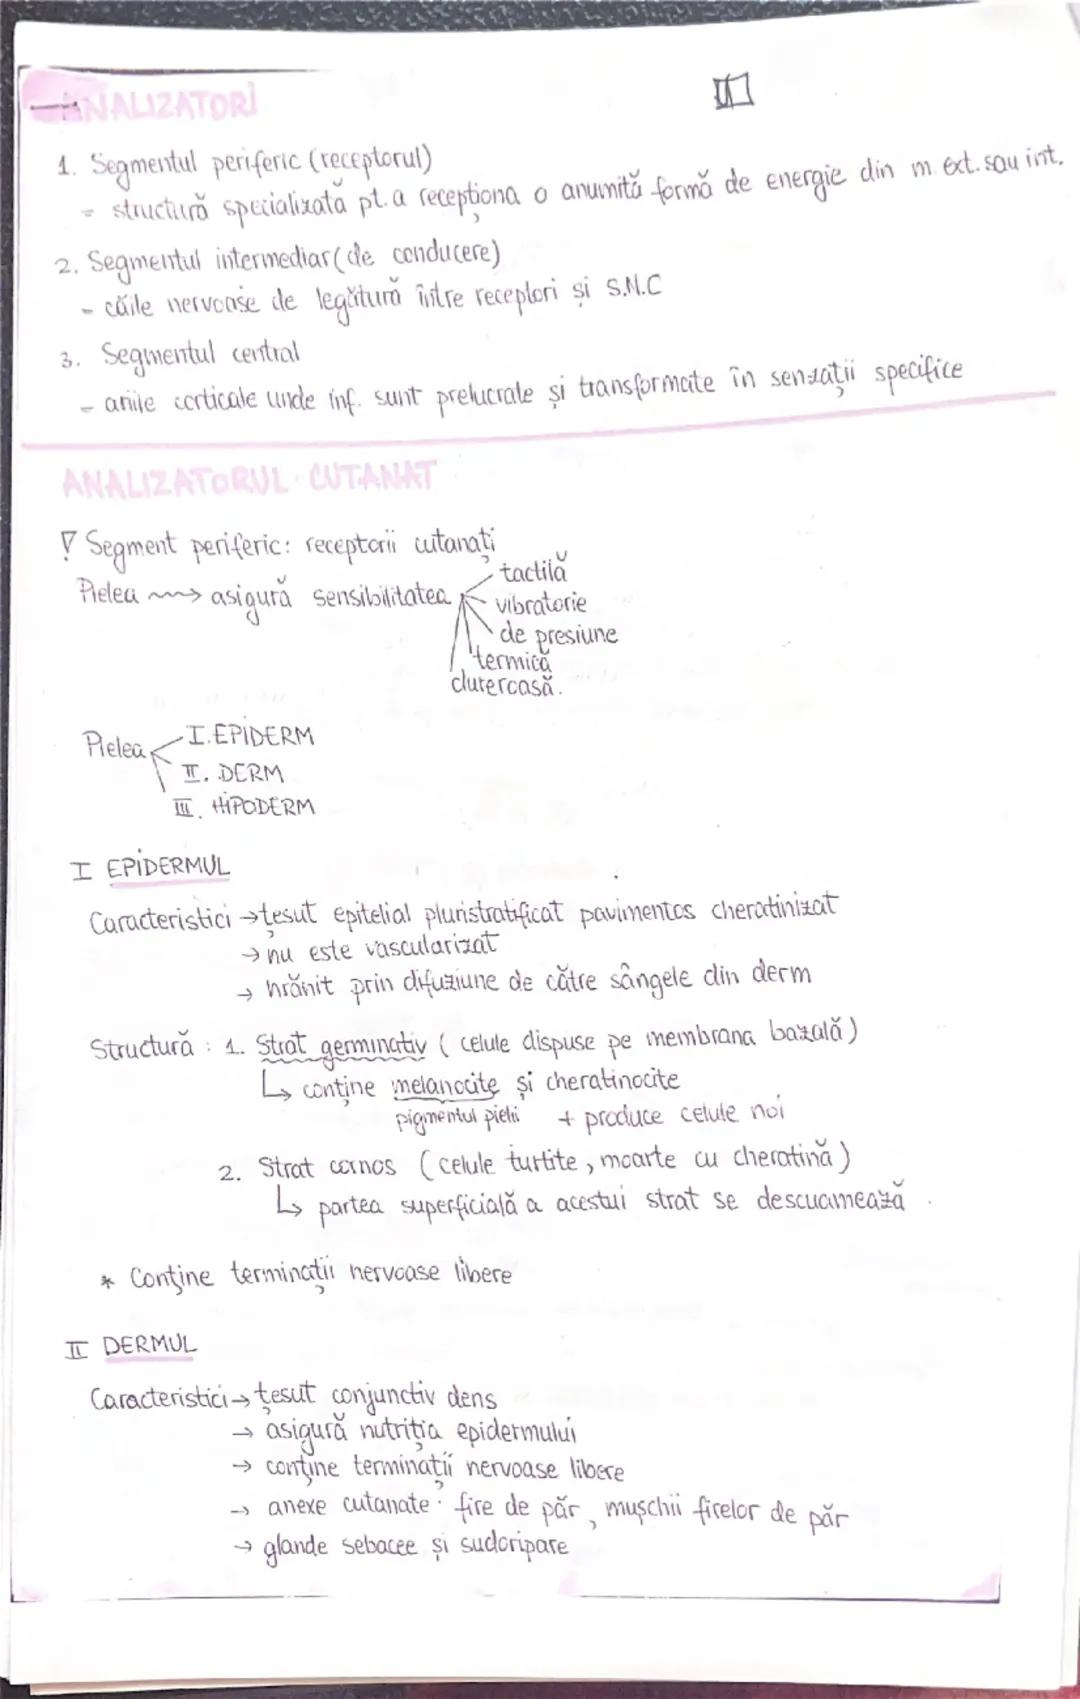 ANALIZATORI
1. Segmentul periferic (receptorul)
- structură specializată pt. a recepționa o anumită formă de energie din m. ext. sau int.
2. Segmentul intermediar (de conducere)
- căile nervoase de legătură între receptori și S.N.C
3. Segmentul central
- ariile corticale unde inf. sunt prelucrate și transformate în senzații specifice
ANALIZATORUL CUTANAT
Segment periferic: receptorii cutanați
Pielea → asigură sensibilitatea
tactilă
vibratorie
de presiune
termică
dureroasă.
Pielea
I. EPIDERM
II. DERM
III. HIPODERM
I EPIDERMUL
Caracteristici → țesut epitelial pluristratificat pavimentos cheratinizat
→ nu este vascularizat
→ hrănit prin difuziune de către sângele din derm
Structură : 1. Strat germinativ (celule dispuse pe membrana bazală)
↳ conține melanocite și cheratinocite
pigmentul pielii + produce celule noi
2. Strat cornos (celule turtite, moarte cu cheratină)
↳ partea superficială a acestui strat se descuamează.
* Conține terminații nervoase libere
II DERMUL
Caracteristici → țesut conjunctiv dens
→ asigură nutriția epidermului
→ conține terminații nervoase libere
→ anexe cutanate: fire de păr, mușchii firelor de păr
→ glande sebacee și sudoripare